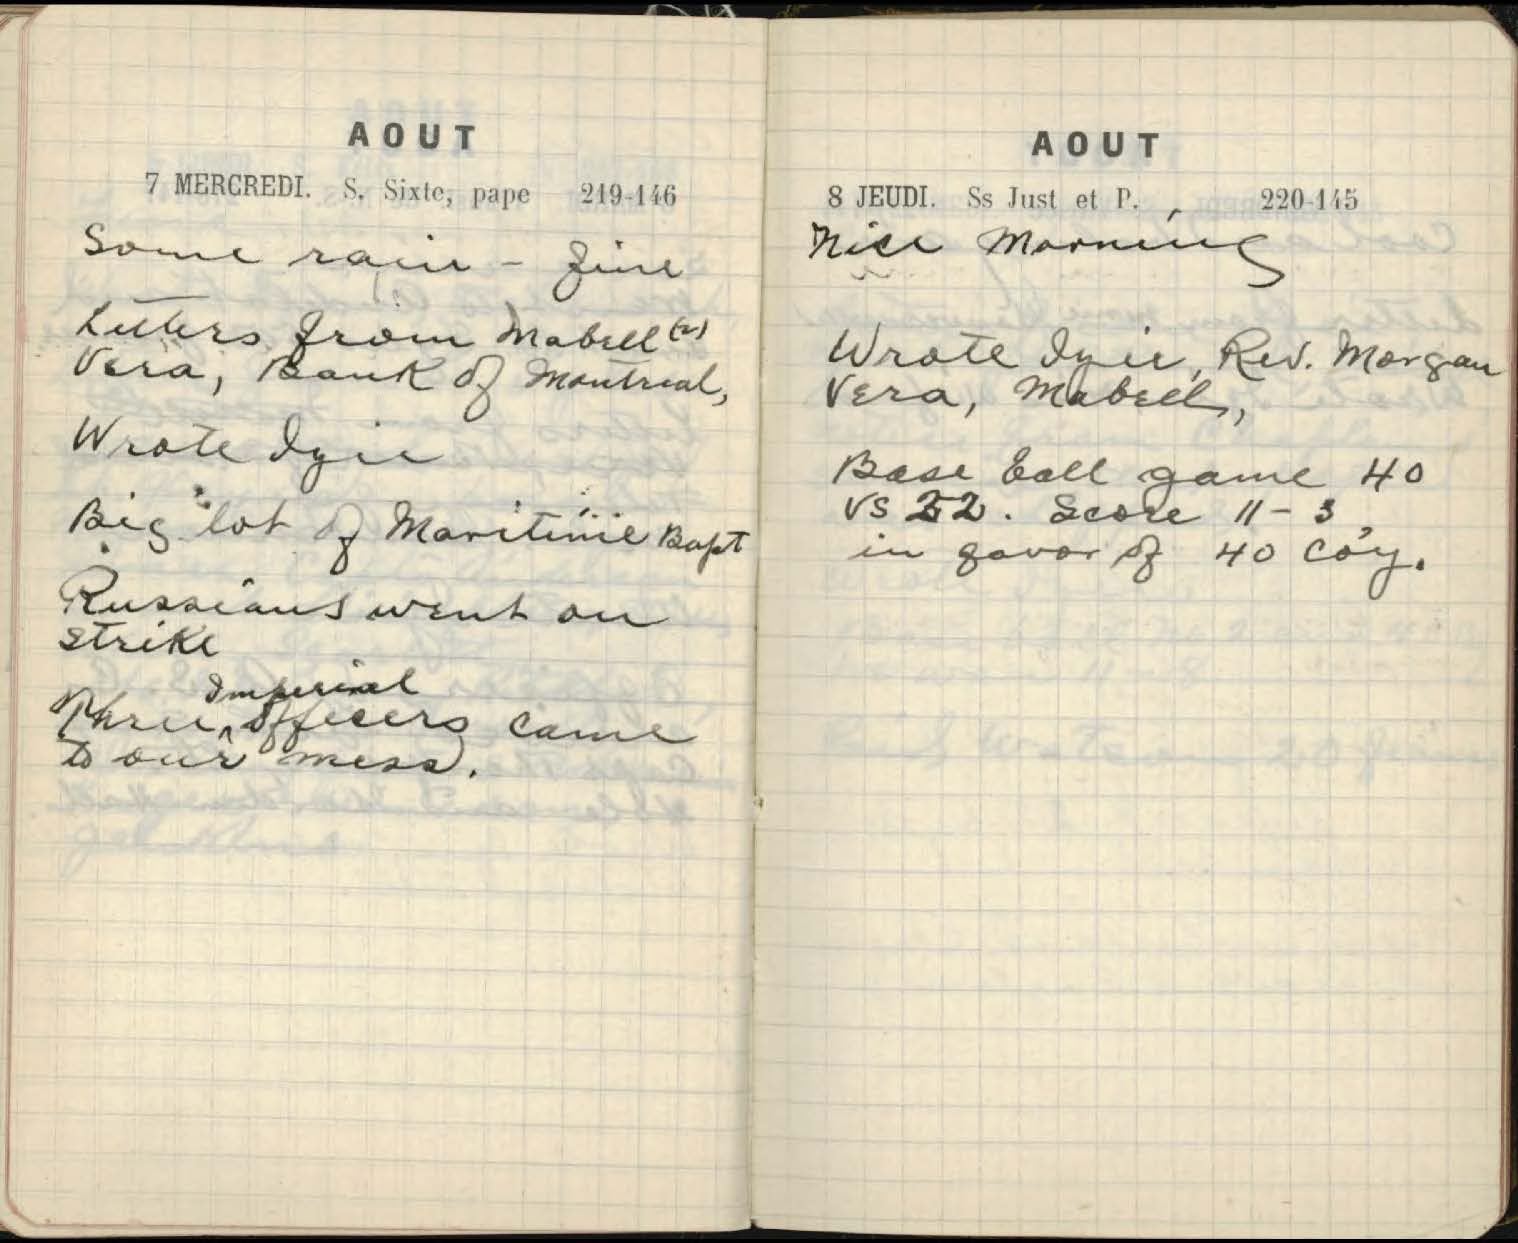 AOUT
7 MERCREDI. S. Sixte, pape 219-146
Some rain - fine
Letters from Mabell (2)
Vera, Bank of Montreal,
Wrote Izie
Big lot of Maritime Bapt
Russians went on
strike
Imperial
Three ^ officers came
to our mess.
AOUT
8 JEUDI. Ss Just et P. 220-145
Nice Morning
Wrote Izie, Rev. Morgan
Vera, Mabell,
Base ball game 40
vs 22. Score 11-3,
in favor of 40 Co'y.